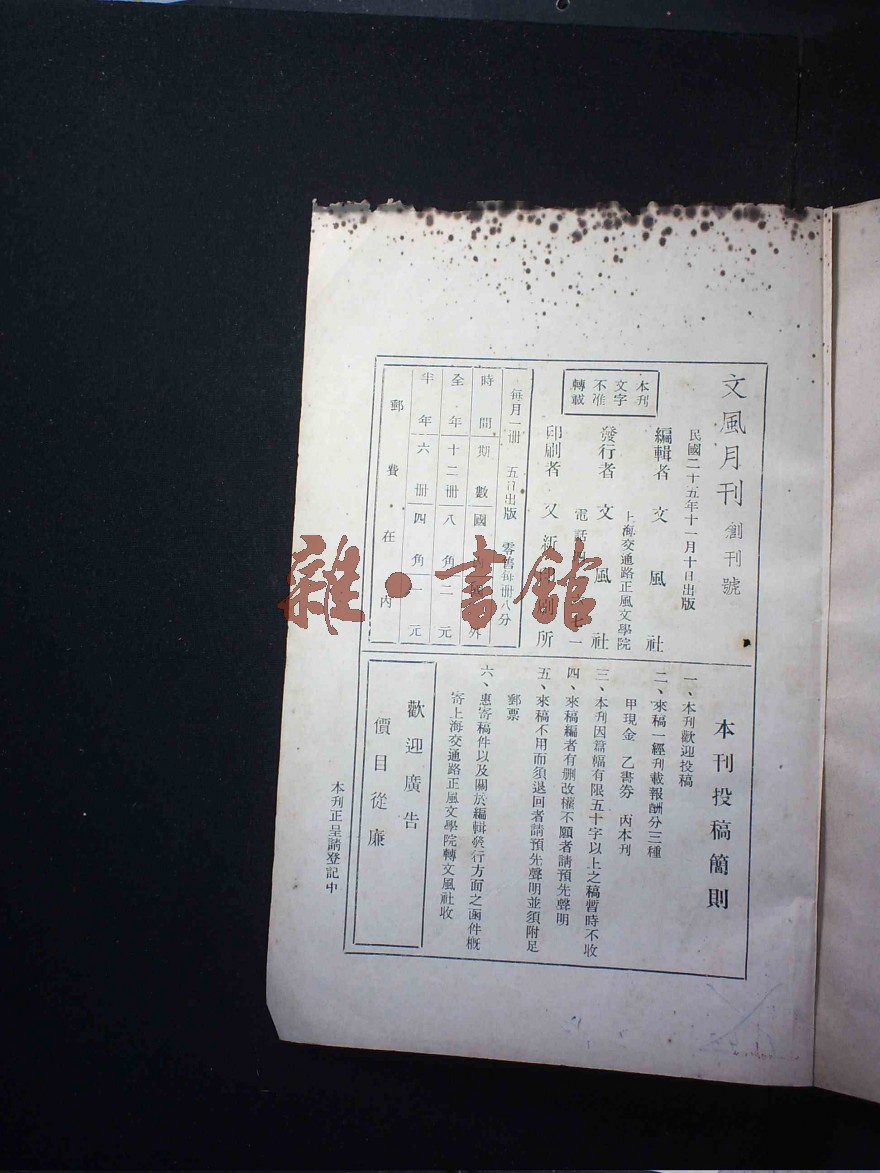 文風月刊 創刊號
民國二十五年十一月十日出版
編輯者 文風社
上海交通路正風文學院
發行者 文風社
電話四
印刷者 又新印刷所
本刊
文字
不准
轉載
每月一冊 五日出版 零售每冊八分
時間 期數 國內 國外
全年 十二冊 八角 二元
半年 六冊 四角 一元
郵費在內
本刊投稿簡則
一、本刊歡迎投稿
二、來稿一經刊載報酬分三種
甲現金 乙書券 丙本刊
三、本刊因篇幅有限五十字以上之稿暫時不收
四、來稿編者有刪改權不願者請預先聲明
五、來稿不用而須退回者請預先聲明並須附足
郵票
六、惠寄稿件以及關於編輯發行方面之函件概
寄上海交通路正風文學院轉文風社收
歡迎廣告
價目從廉
本刊正呈請登記中
雜·書館